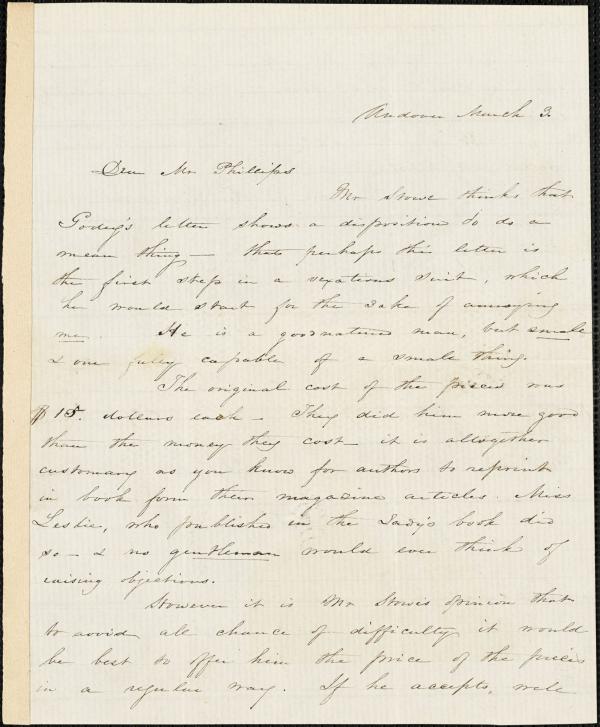 Andover March 3.
Dear Mr Phillips
Mr Stowe thinks that
Godey's letter shows a disposition to do a
mean thing — that perhaps this letter is
the first step in a vexatious suit, which
he would start for the sake of annoying
me. He is a goodnatured man, but small
& one fully capable of a small thing.
The original cost of the pieces was
$15. dollars each — They did him more good
than the money they cost it is altogether
customary as you know for authors to reprint
in book form their magazine articles. Miss
Leslie, who published in the Lady's book did
so — & no gentleman would ever think of
raising objections.
However it is Mr Stowe's opinion that
to avoid all chance of difficulty it would
be best to offer him the price of the pieces
in a regular way. If he accepts, well